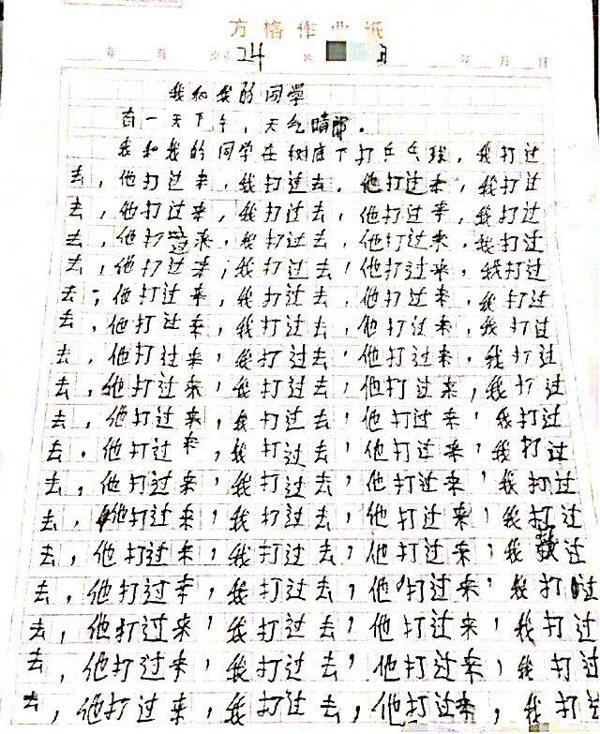 方格作业纸
年 24 年 月 日
我和我的同學
有一天下午，天气晴朗。
我和我的同学在树底下打乒乓球，我打过
去，他打过来，我打过去，他打过来，我打过
去，他打过来，我打过去，他打过来，我打过
去，他打过来，我打过去，他打过来，我打过
去，他打过来，我打过去，他打过来，我打过
去，他打过来，我打过去，他打过来，我打过
去，他打过来，我打过去，他打过来，我打过
去，他打过来，我打过去，他打过来，我打过
去，他打过来，我打过去，他打过来，我打过
去，他打过来，我打过去，他打过来，我打过
去，他打过来，我打过去，他打过来，我打过
去，他打过来，我打过去，他打过来，我打过
去，他打过来，我打过去，他打过来，我打过
去，他打过来，我打过去，他打过来，我过
去，他打过来，我打过去，他打过来，我打过
去，他打过来，我打过去，他打过来，我打过
去，他打过来，我打过去，他打过来，我打过
去，他打过来，我打过去，他打过来，我打过